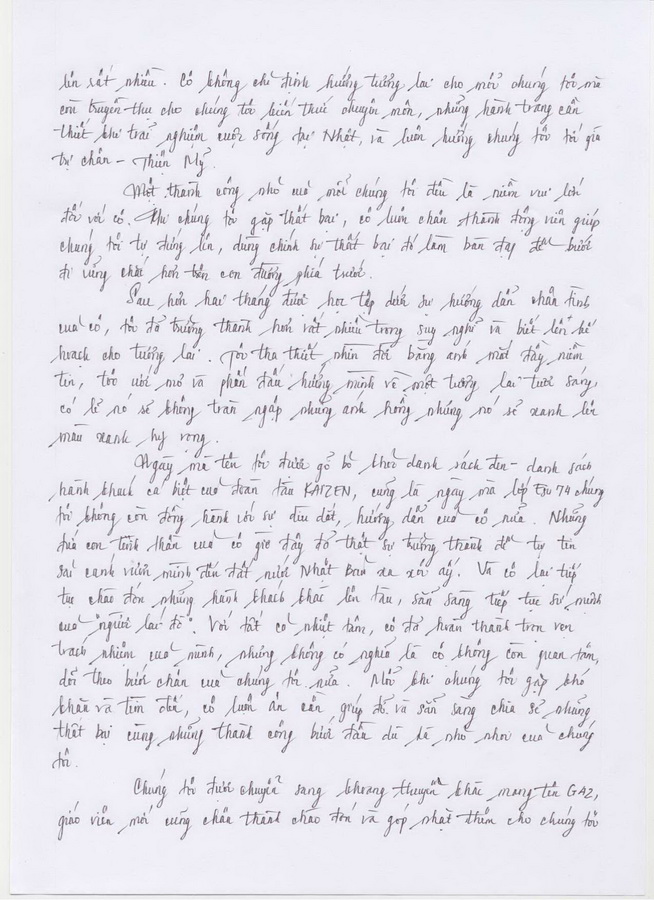 lên rất nhiều. Cô không chỉ định hướng tương lai cho mỗi chúng tôi mà
còn truyền thụ cho chúng tôi kiến thức chuyên môn, những hành trang cần
thiết khi trải nghiệm cuộc sống tại Nhật, và luôn hướng chúng tôi tới giá
trị chân - Thiện Mỹ.
Một thành công nhỏ của mỗi chúng tôi đều là niềm vui lớn
đối với cô. Khi chúng tôi gặp thất bại, cô luôn chân thành động viên giúp
chúng tôi tự đứng lên, dùng chính sự thất bại đó làm bàn đạp để bước
đi vững chắc hơn trên con đường phía trước.
Sau hơn hai tháng được học tập dưới sự hướng dẫn chân tình
của cô, tôi đã trưởng thành hơn rất nhiều trong suy nghĩ và biết lên kế
hoạch cho tương lai. Tôi tha thiết nhìn đời bằng ánh mắt đầy niềm
tin, tôi ước mơ và phấn đấu hướng mình về một tương lai tươi sáng,
có lẽ nó sẽ không tràn ngập những ánh hồng nhưng nó sẽ xanh lên
màu xanh hy vọng.
Ngày mà tên tôi được gỡ bỏ khỏi danh sách đen - danh sách
hành khách cá biệt của đoàn tàu KAIZEN, cũng là ngày mà lớp 74 chúng
tôi không còn đồng hành với sự dìu dắt, hướng dẫn của cô nữa. Những
đứa con tinh thần của cô giờ đây đã thật sự trưởng thành để tự tin
sải cánh mình đến đất nước Nhật Bản xa xôi ấy. Và cô lại tiếp
tục chào đón những hành khách khác lên tàu, sẵn sàng tiếp tục sứ mệnh
của "người lái đò". Với tất cả nhiệt tâm, cô đã hoàn thành trọn vẹn
trách nhiệm của mình, nhưng không có nghĩa là cô không còn quan tâm,
dõi theo bước chân của chúng tôi nữa. Mỗi khi chúng tôi gặp khó
khăn và tìm đến, cô luôn ân cần giúp đỡ và sẵn sàng chia sẻ những
thất bại cùng những thành công bước đầu dù là nhỏ nhoi của chúng
tôi.
Chúng tôi được chuyển sang khoang thuyền khác mang tên GA2,
giáo viên mới cũng chân thành chào đón và góp nhặt thêm cho chúng tôi